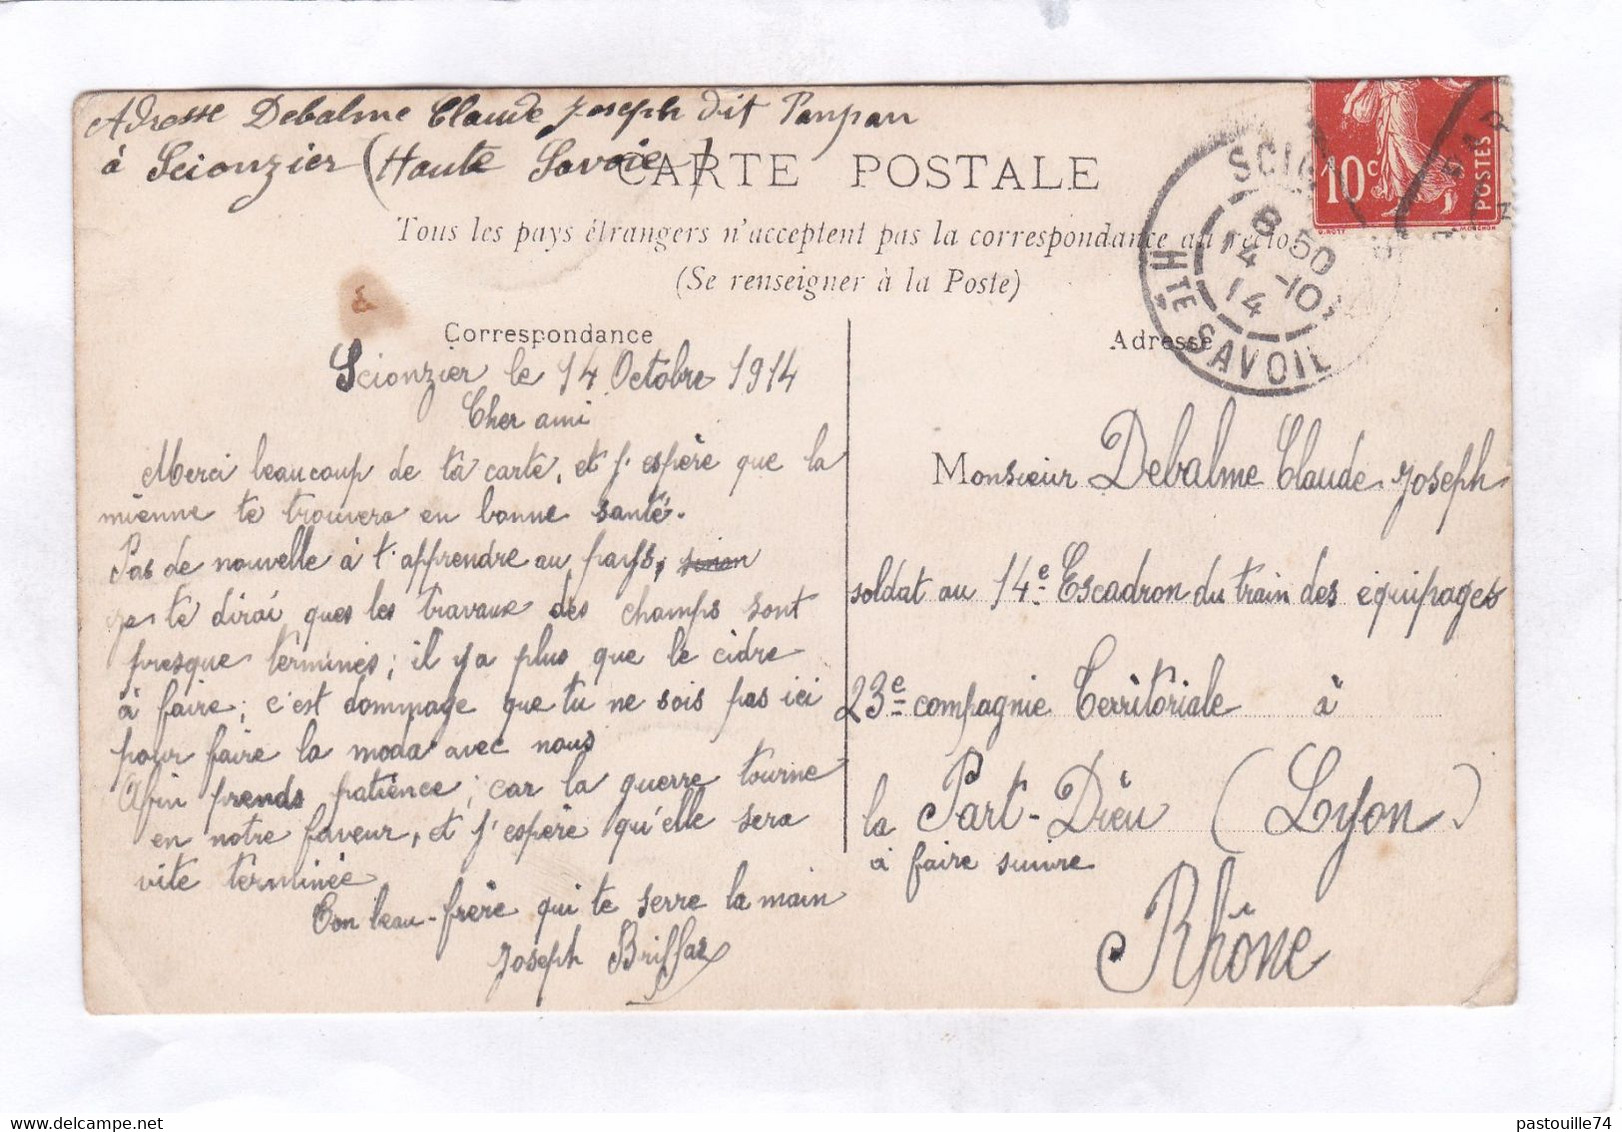 Adresse Debalme Claude Joseph dit Panpan
à Scionzier (Haute Savoie)
CARTE POSTALE
Tous les pays étrangers n'acceptent pas la correspondance au recto
(Se renseigner à la Poste)
Correspondance
Scionzier le 14 Octobre 1914
Cher ami
Merci beaucoup de ta carte, et j'espère que la
mienne te trouvera en bonne santé.
Pas de nouvelle à t'apprendre au pays, sinon
je te dirai ques les travaux des champs sont
presque terminés; il y a plus que le cidre
à faire; c'est dommage que tu ne sois pas ici
pour faire la moda avec nous
Afin prends patience; car la guerre tourne
en notre faveur, et j'espère qu'elle sera
vite terminée
Ton beau-frère qui te serre la main
Joseph Briffaz
Adresse
Monsieur Debalme Claude Joseph
soldat au 14e Escadron du train des équipages
23e compagnie Territoriale à
la Part-Dieu (Lyon)
à faire suivre
Rhône
SCIO
8 50
14 -10
14
HTE SAVOIE
10c
POSTES
pastouille74